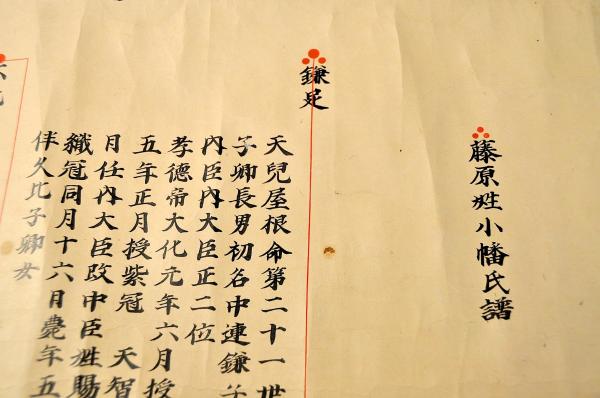 藤原姓小幡氏譜
鎌足
天兒屋根命第二十一世
子卿長男初名中連鎌子
内臣内大臣正二位
孝德帝大化元年六月授
五年正月授紫冠 天智
月任内大臣改中臣姓賜
織冠同月十六月薨年五
伴久比子卿女